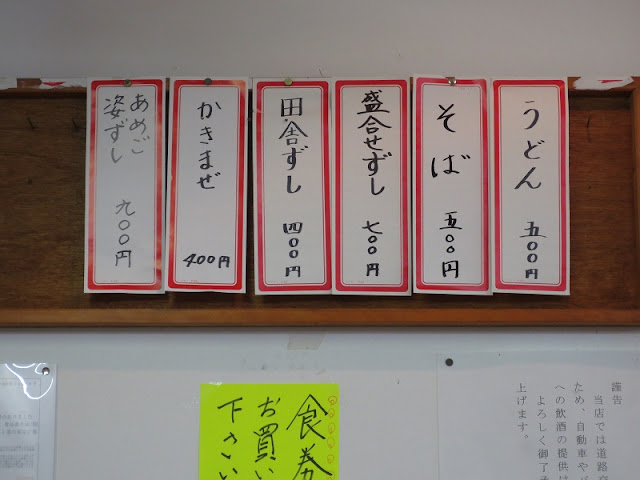 うどん
五〇〇円
そば
五〇〇円
盛合せずし
七〇〇円
田舎ずし
四〇〇円
かきまぜ
400円
あめご
姿ずし
九〇〇円
食券
お買い
下さい
謹告
当店では道路交
ため、自動車や
への飲酒の提供は
よろしく御了承
上げます。